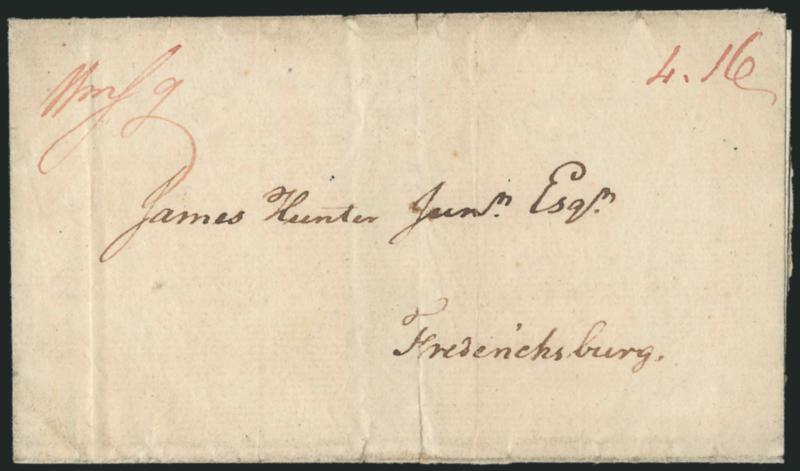 Wmsg
4.16
James Hunter Junr. Esqr.
Frederichsburg.